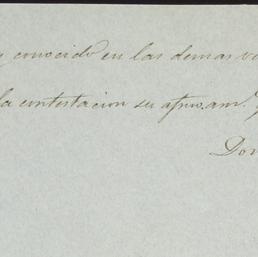 conocido en las demas
la contestacion su afmo. am.º
Don